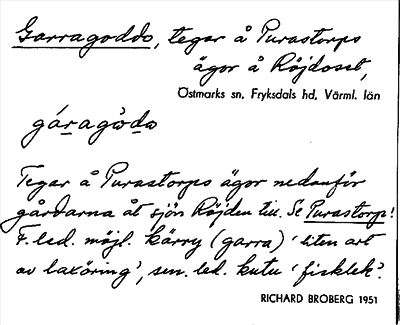 Garragoddo, tegar å Purastorps
ägor å Röjdoset,
Östmarks sn, Fryksdals hd, Värml. län
gáragòdo
Tegar å Purastorps ägor nedanför
gårdarna åt sjön Röjden till. Se Purastorp!
F. led. möjl. kärry (garra) 'liten art
av laxöring', sen. led. kutu 'fisklek'.
RICHARD BROBERG 1951